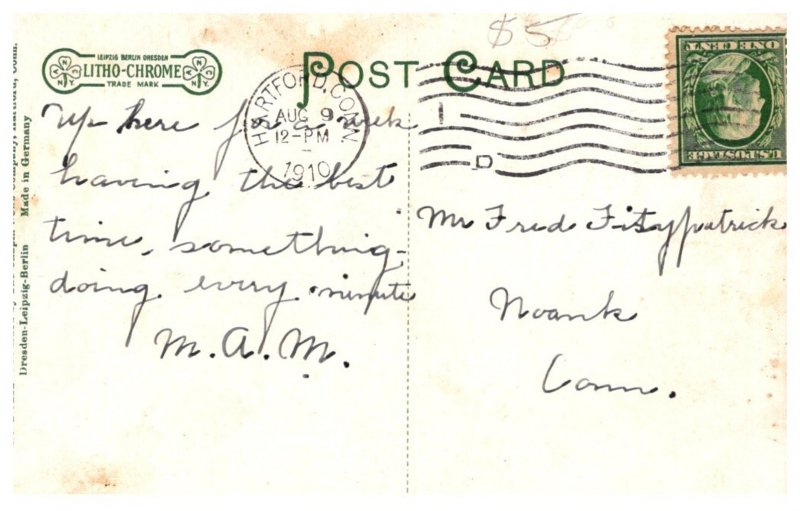 $5
LEIPZIG BERLIN DRESDEN
LITHO-CHROME
TRADE MARK
N Y K
N Y K
POST CARD
HARTFORD, CONN
AUG 9
12-PM
1910
D
U.S. POSTAGE
ONE CENT
Up here for a week
having the best
time, something
doing every minute
M.A.M.
Mr Fred Fitzpatrick
Noank
Conn.
Hartford, Conn.
Dresden-Leipzig-Berlin Made in Germany